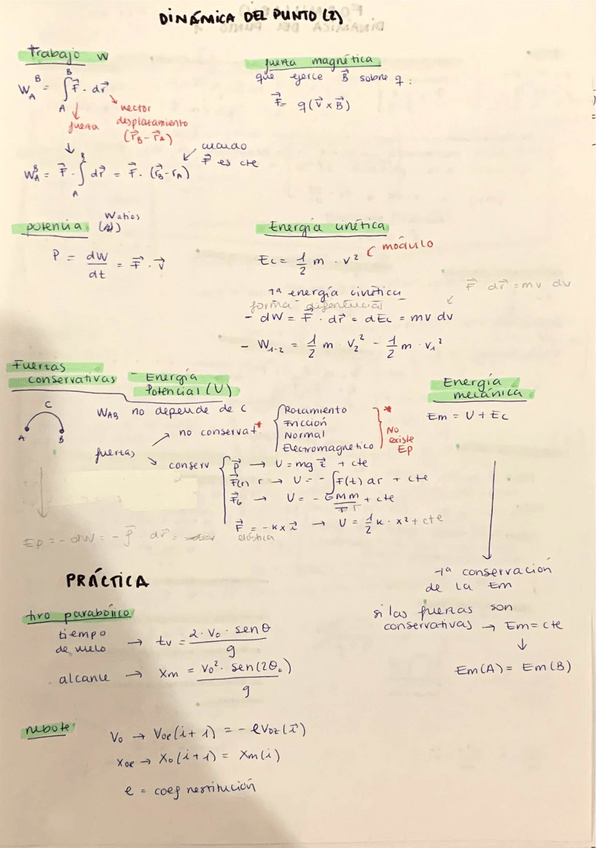 DINÁMICA DEL PUNTO (2)
Trabajo W
W_A^B = ∫_A^B F⃗ · dr⃗
fuerza
vector
desplazamiento
(r⃗_B - r⃗_A)
W_A^B = F⃗ · ∫_A^B dr⃗ = F⃗ · (r⃗_B - r_A)
cuando
F⃗ es cte
fuerza magnética
que ejerce B⃗ sobre q :
F⃗ = q(v⃗ x B⃗)
potencia (W)
Watios
P = dW/dt = F⃗ · v⃗
Energía cinética
Ec = 1/2 m · v² módulo
Tª energía cinética
forma diferencial
F⃗ dr⃗ = mv dv
- dW = F⃗ · dr⃗ = dEc = mv dv
- W₁₋₂ = 1/2 m · v₂² - 1/2 m · v₁²
Fuerzas
conservativas - Energía
Potencial (U)
C
A B
W_AB no depende de C
fuerzas
→ no conservat.*
Rozamiento
Fricción
Normal
Electromagnético
* No
existe
Ep
→ conserv
P⃗ → U = mg z⃗ + cte
F(r) r → U = - ∫F(t) dr + cte
F⃗_G → U = - GMm + cte
F⃗ = -kx i⃗ → U = 1/2 k · x² + cte
elástica
Ep = - dW = - F⃗ dr⃗ =
Energía
mecánica
Em = U + Ec
Tª conservación
de la Em
si las fuerzas son
conservativas → Em = cte
↓
Em(A) = Em(B)
PRÁCTICA
tiro parabólico
tiempo
de vuelo → tv = 2 · v₀ · senθ / g
alcance → xm = v₀² · sen(2θ₀) / g
rebote
V₀ → V₀z(i + 1) = - eV₀z(i⃗)
x₀z → x₀(i + 1) = xm(i)
e = coef restitución